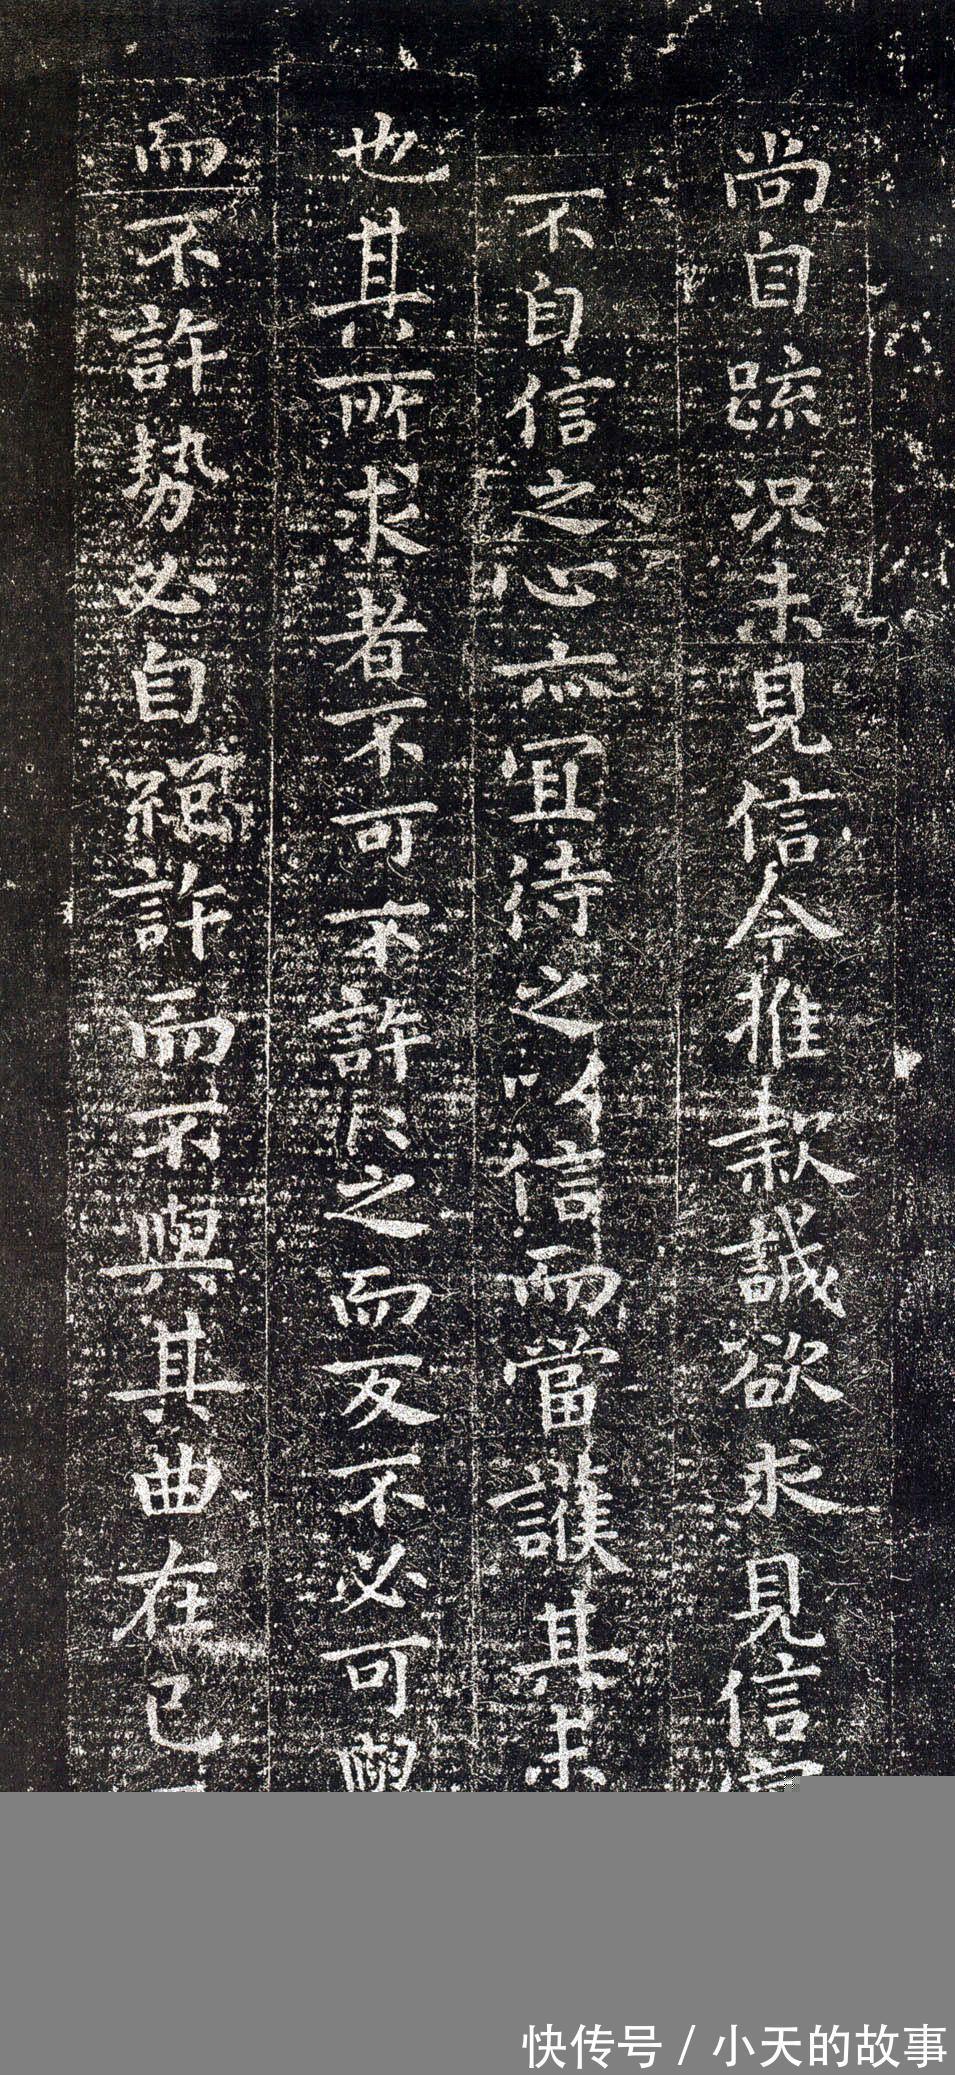 尚自疏况未見信今推款誠欲求見信
不自信之心亦宜待之以信而當護其未
也其所求者不可不許許之而反不必可與
而不許勢必自絕許而不與其曲在己
快传号/小天的故事